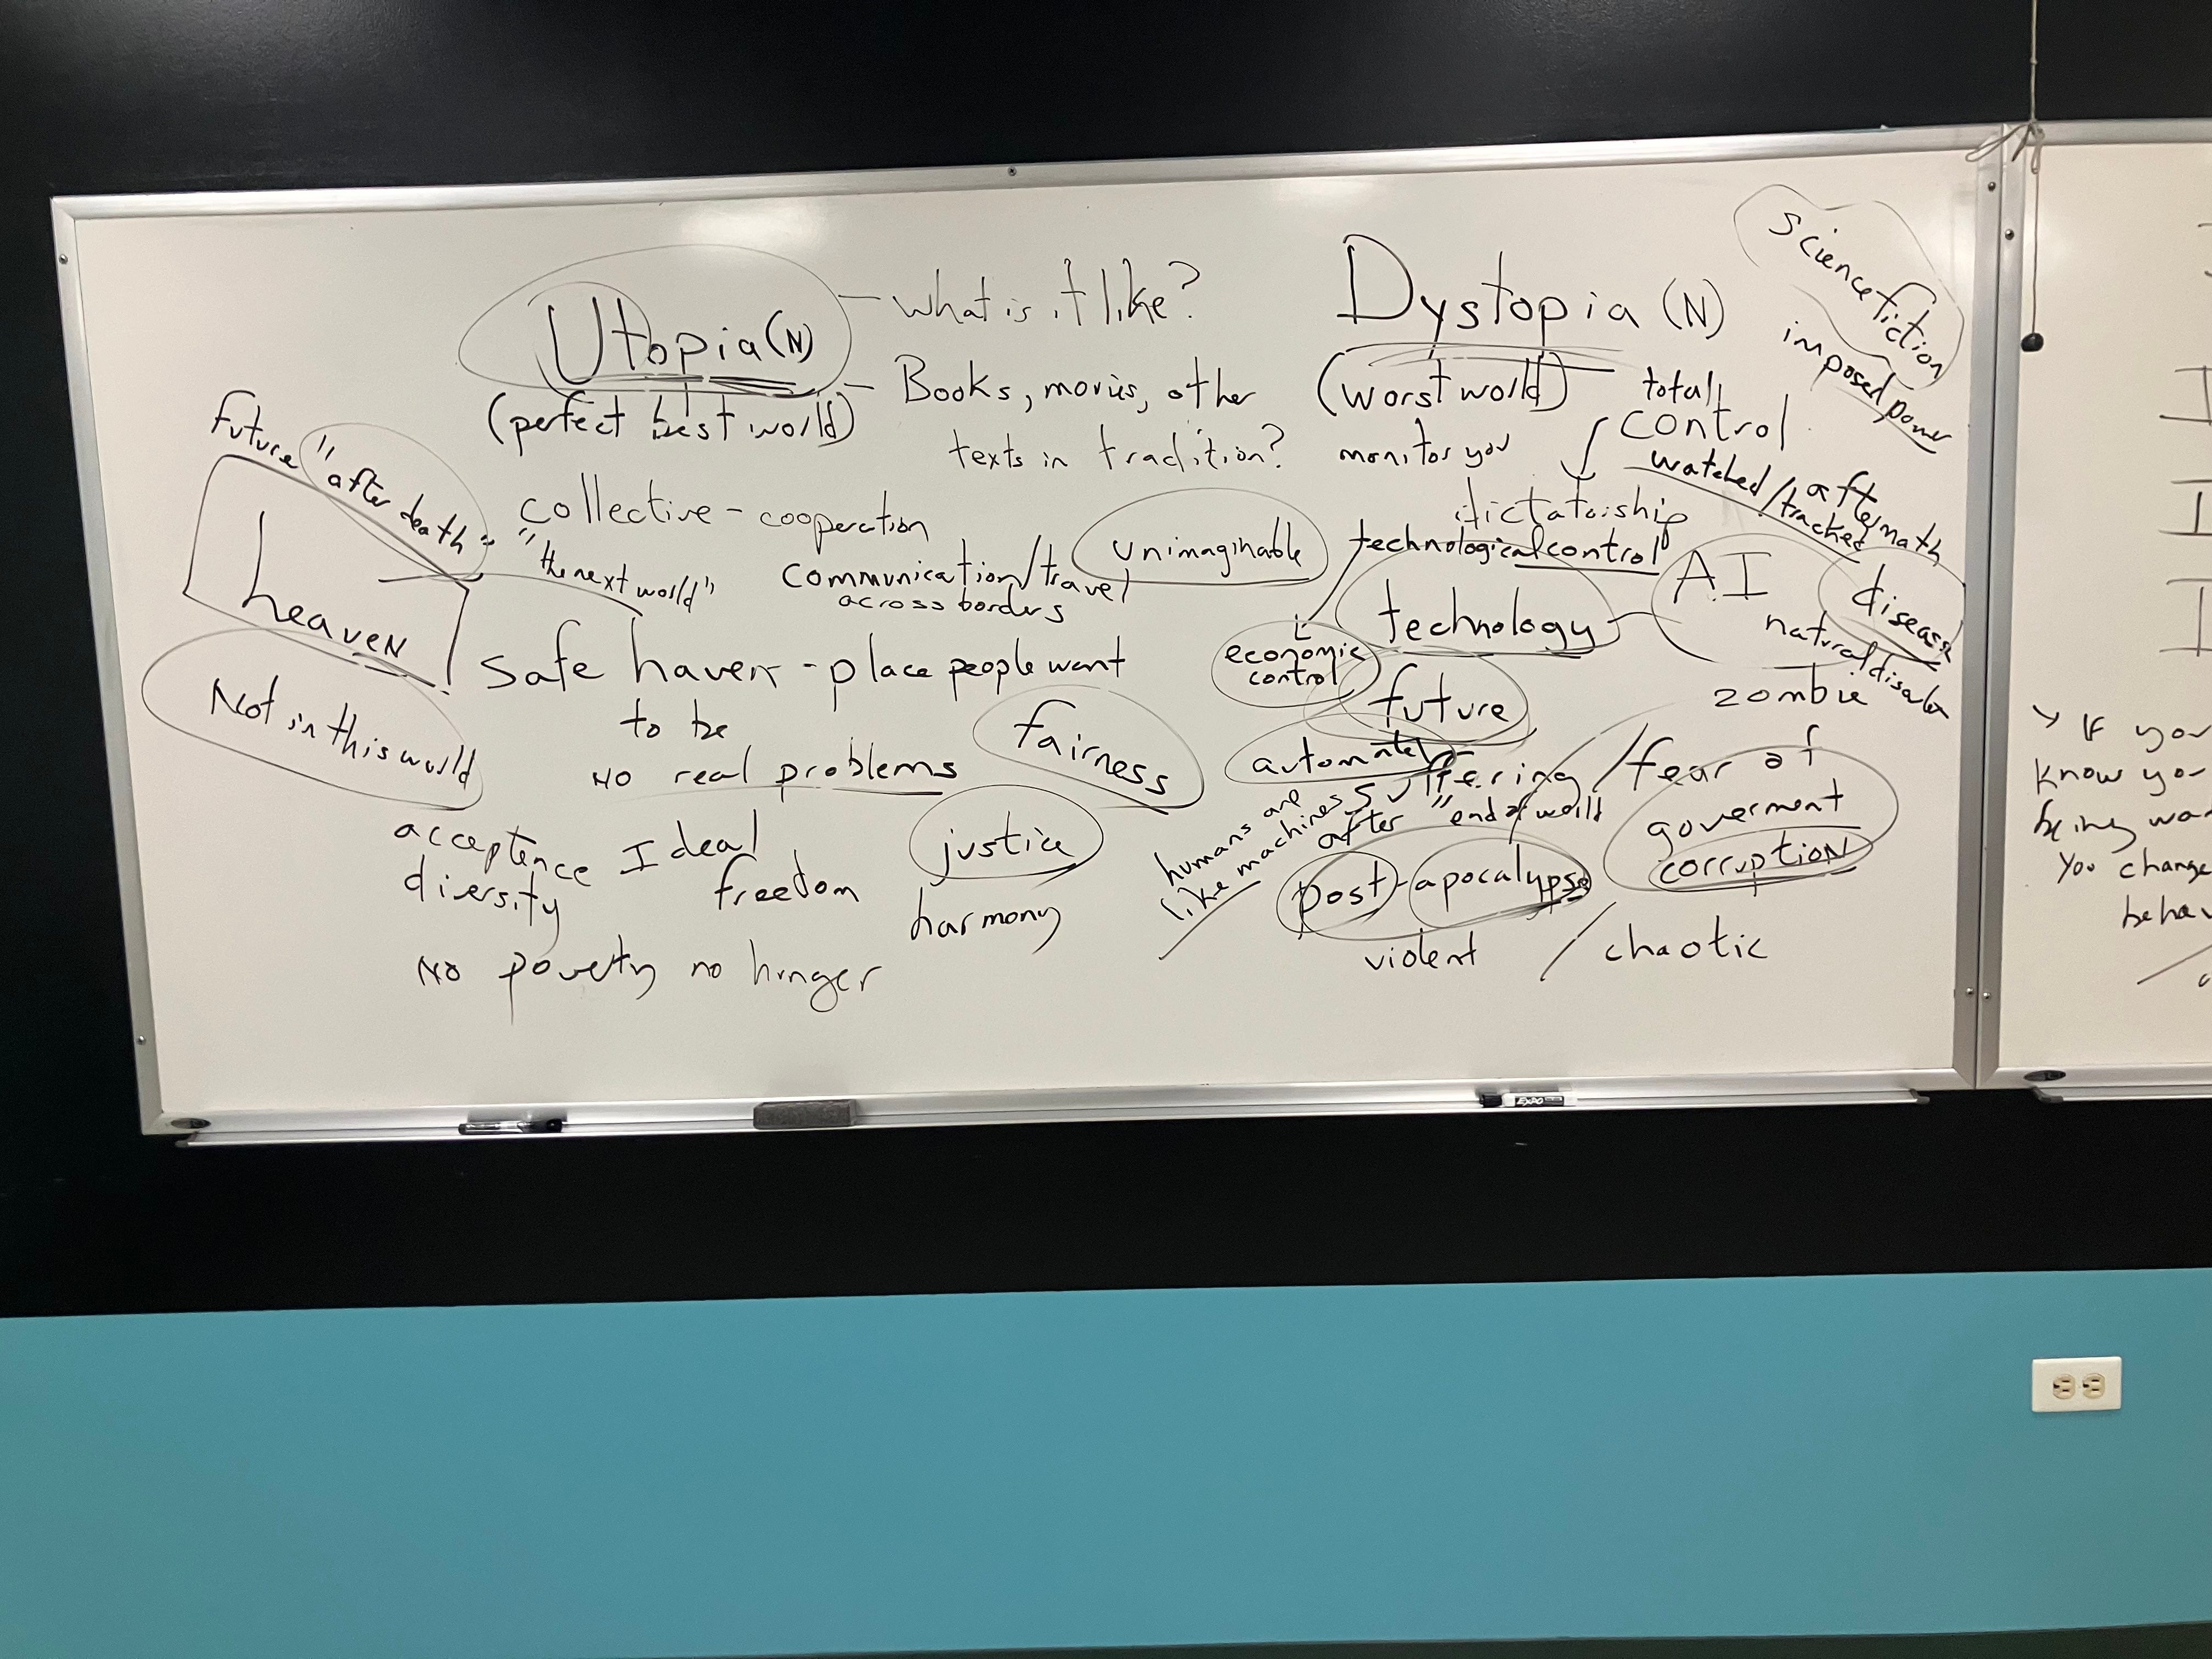 Utopia (N)
(perfect best world)
- what is it like?
- Books, movies, other
texts in tradition?
future "after death"
heaven
Not in this world
collective - cooperation
"the next world"
communication/travel
across borders
unimaginable
safe haven - place people want
to be
No real problems
fairness
acceptence
diversity
Ideal
freedom
justice
harmony
No poverty no hunger
Dystopia (N)
(worst world)
science fiction
imposed power
total
control
monitor you
watched/tracked
dictatorship
technological control
technology
AI
aftermath
disease
natural disaster
zombie
economic
control
future
automated
humans are
like machines
suffering
after "end of world
post-apocalypse
violent
/ chaotic
/ fear of
goverment
corruption
If you
know you
being
you change
EXPO